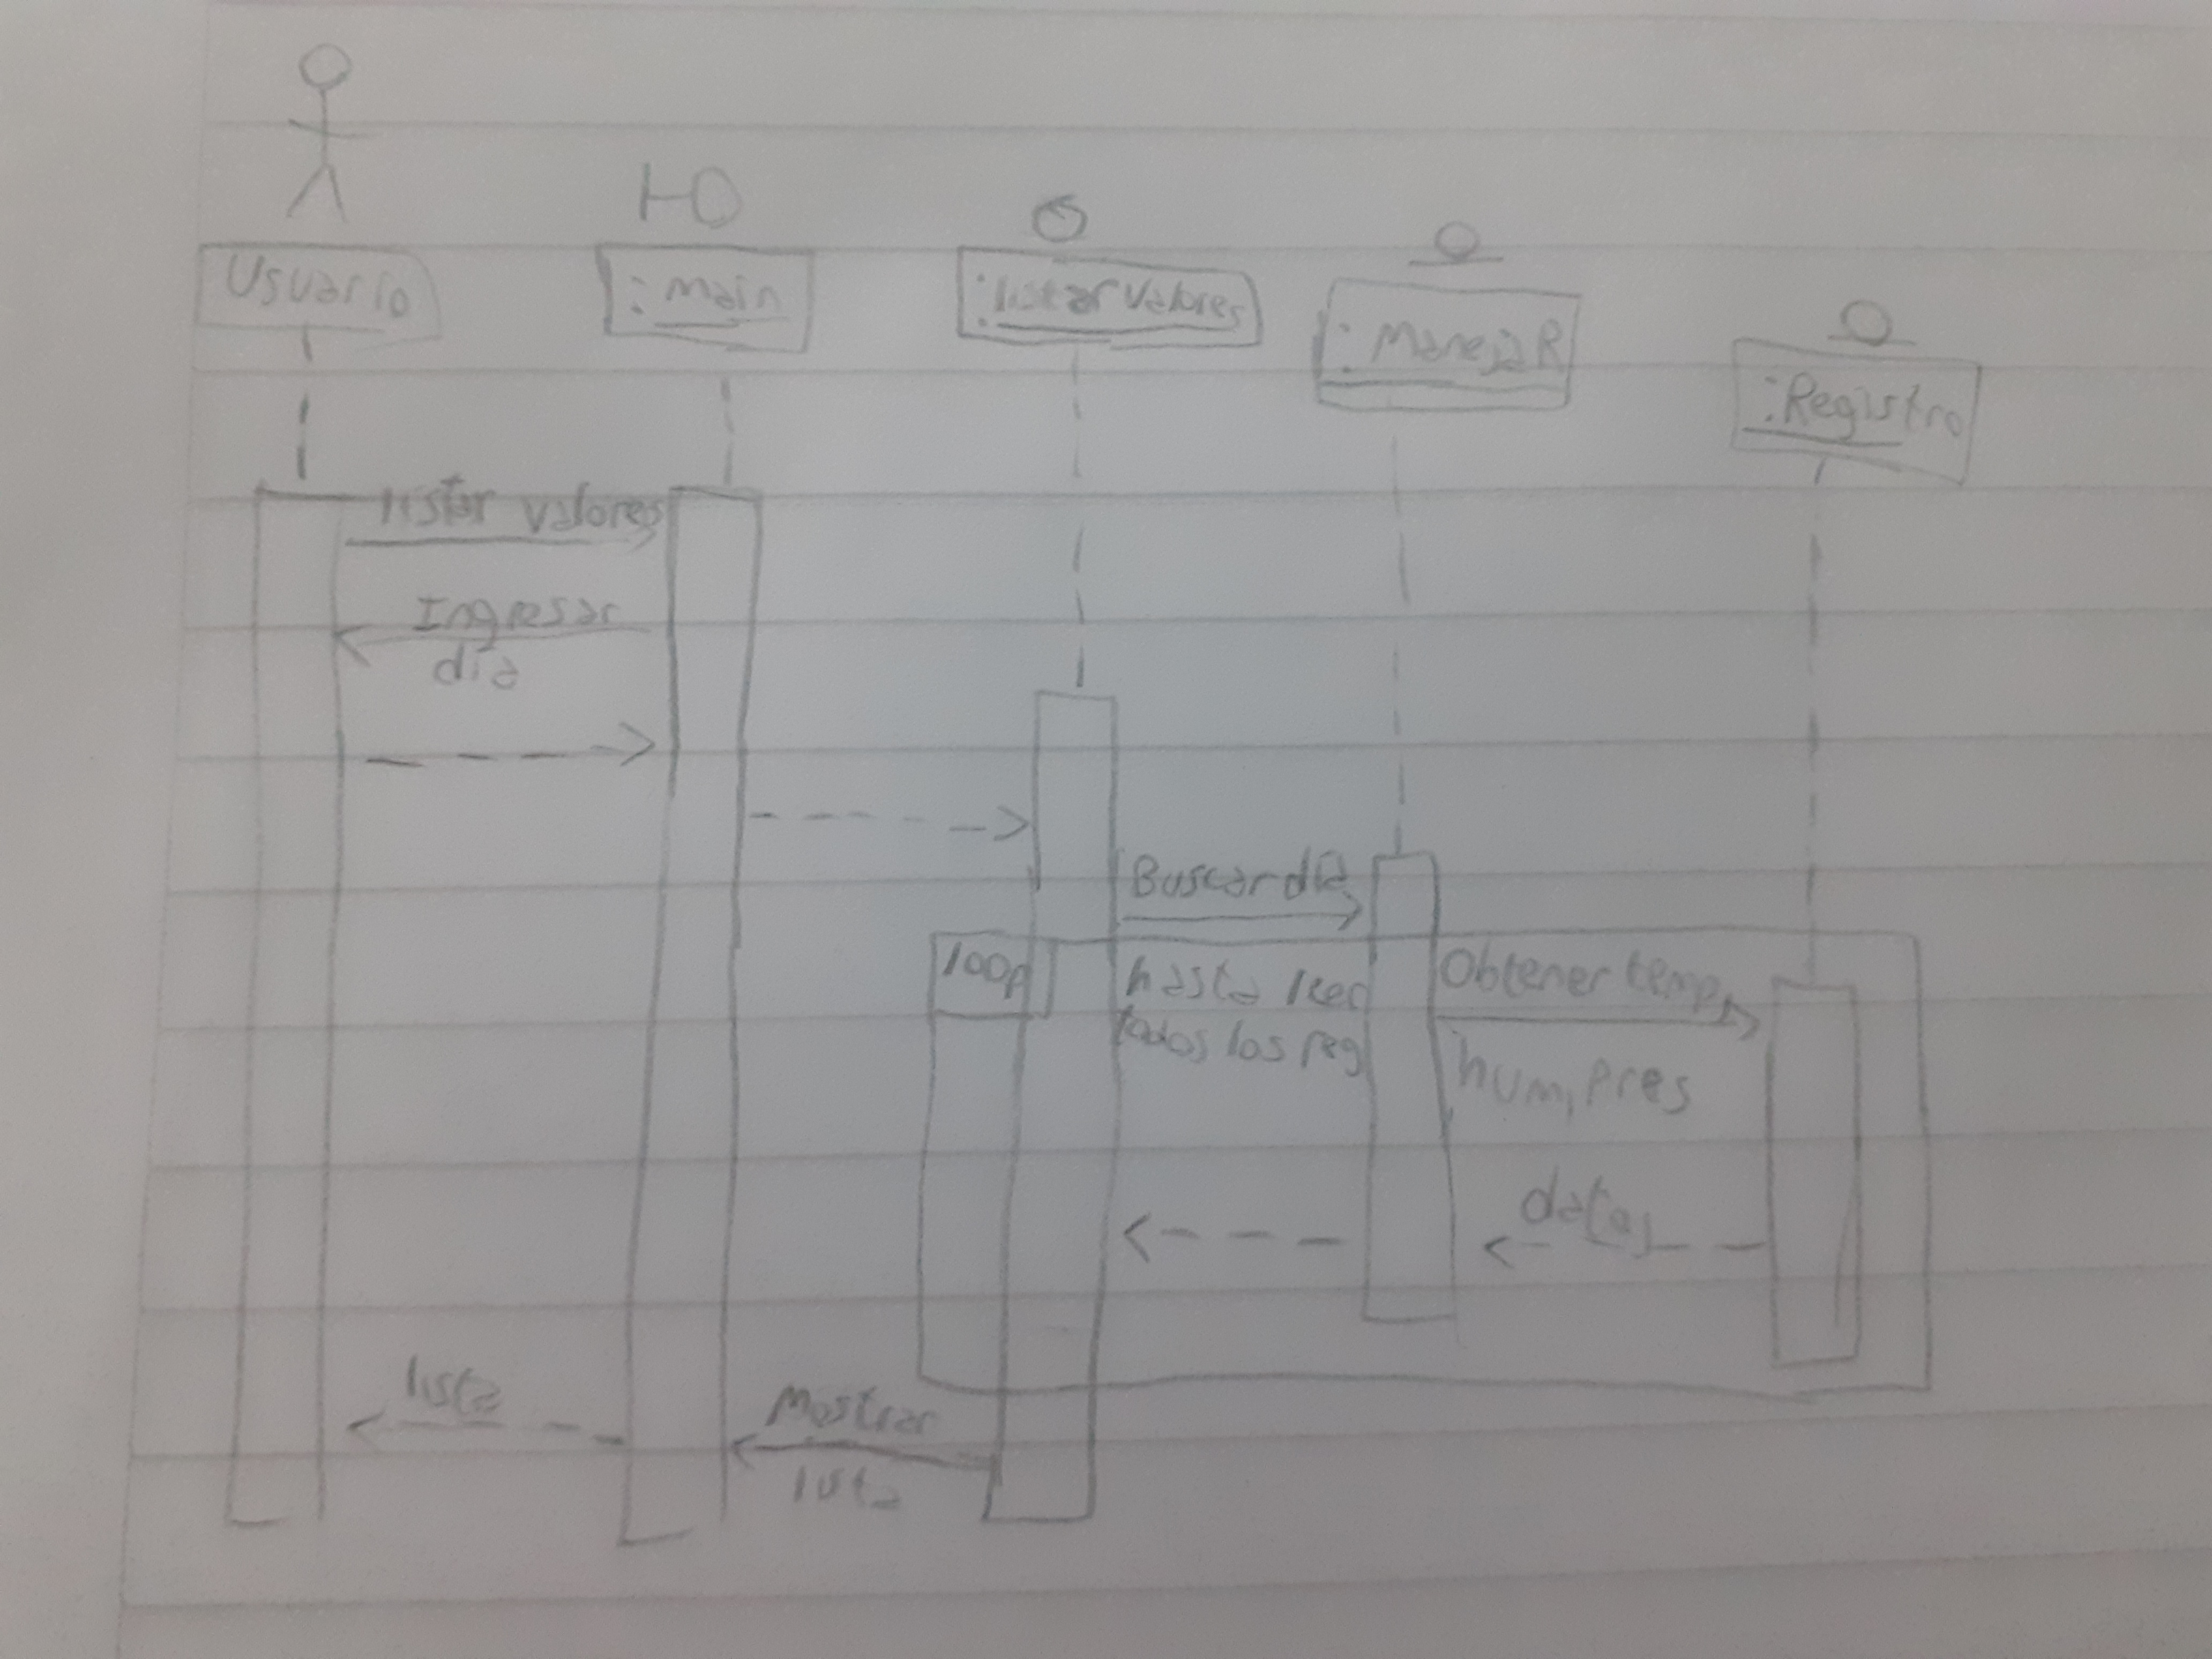 Usuario
: main
: listar valores
: ManejaR
: Registro
listar valores
Ingresar
dia
Buscar dia
loop
hasta leer
todos los reg
Obtener temp,
hum, pres
datos
lista
Mostrar
lista